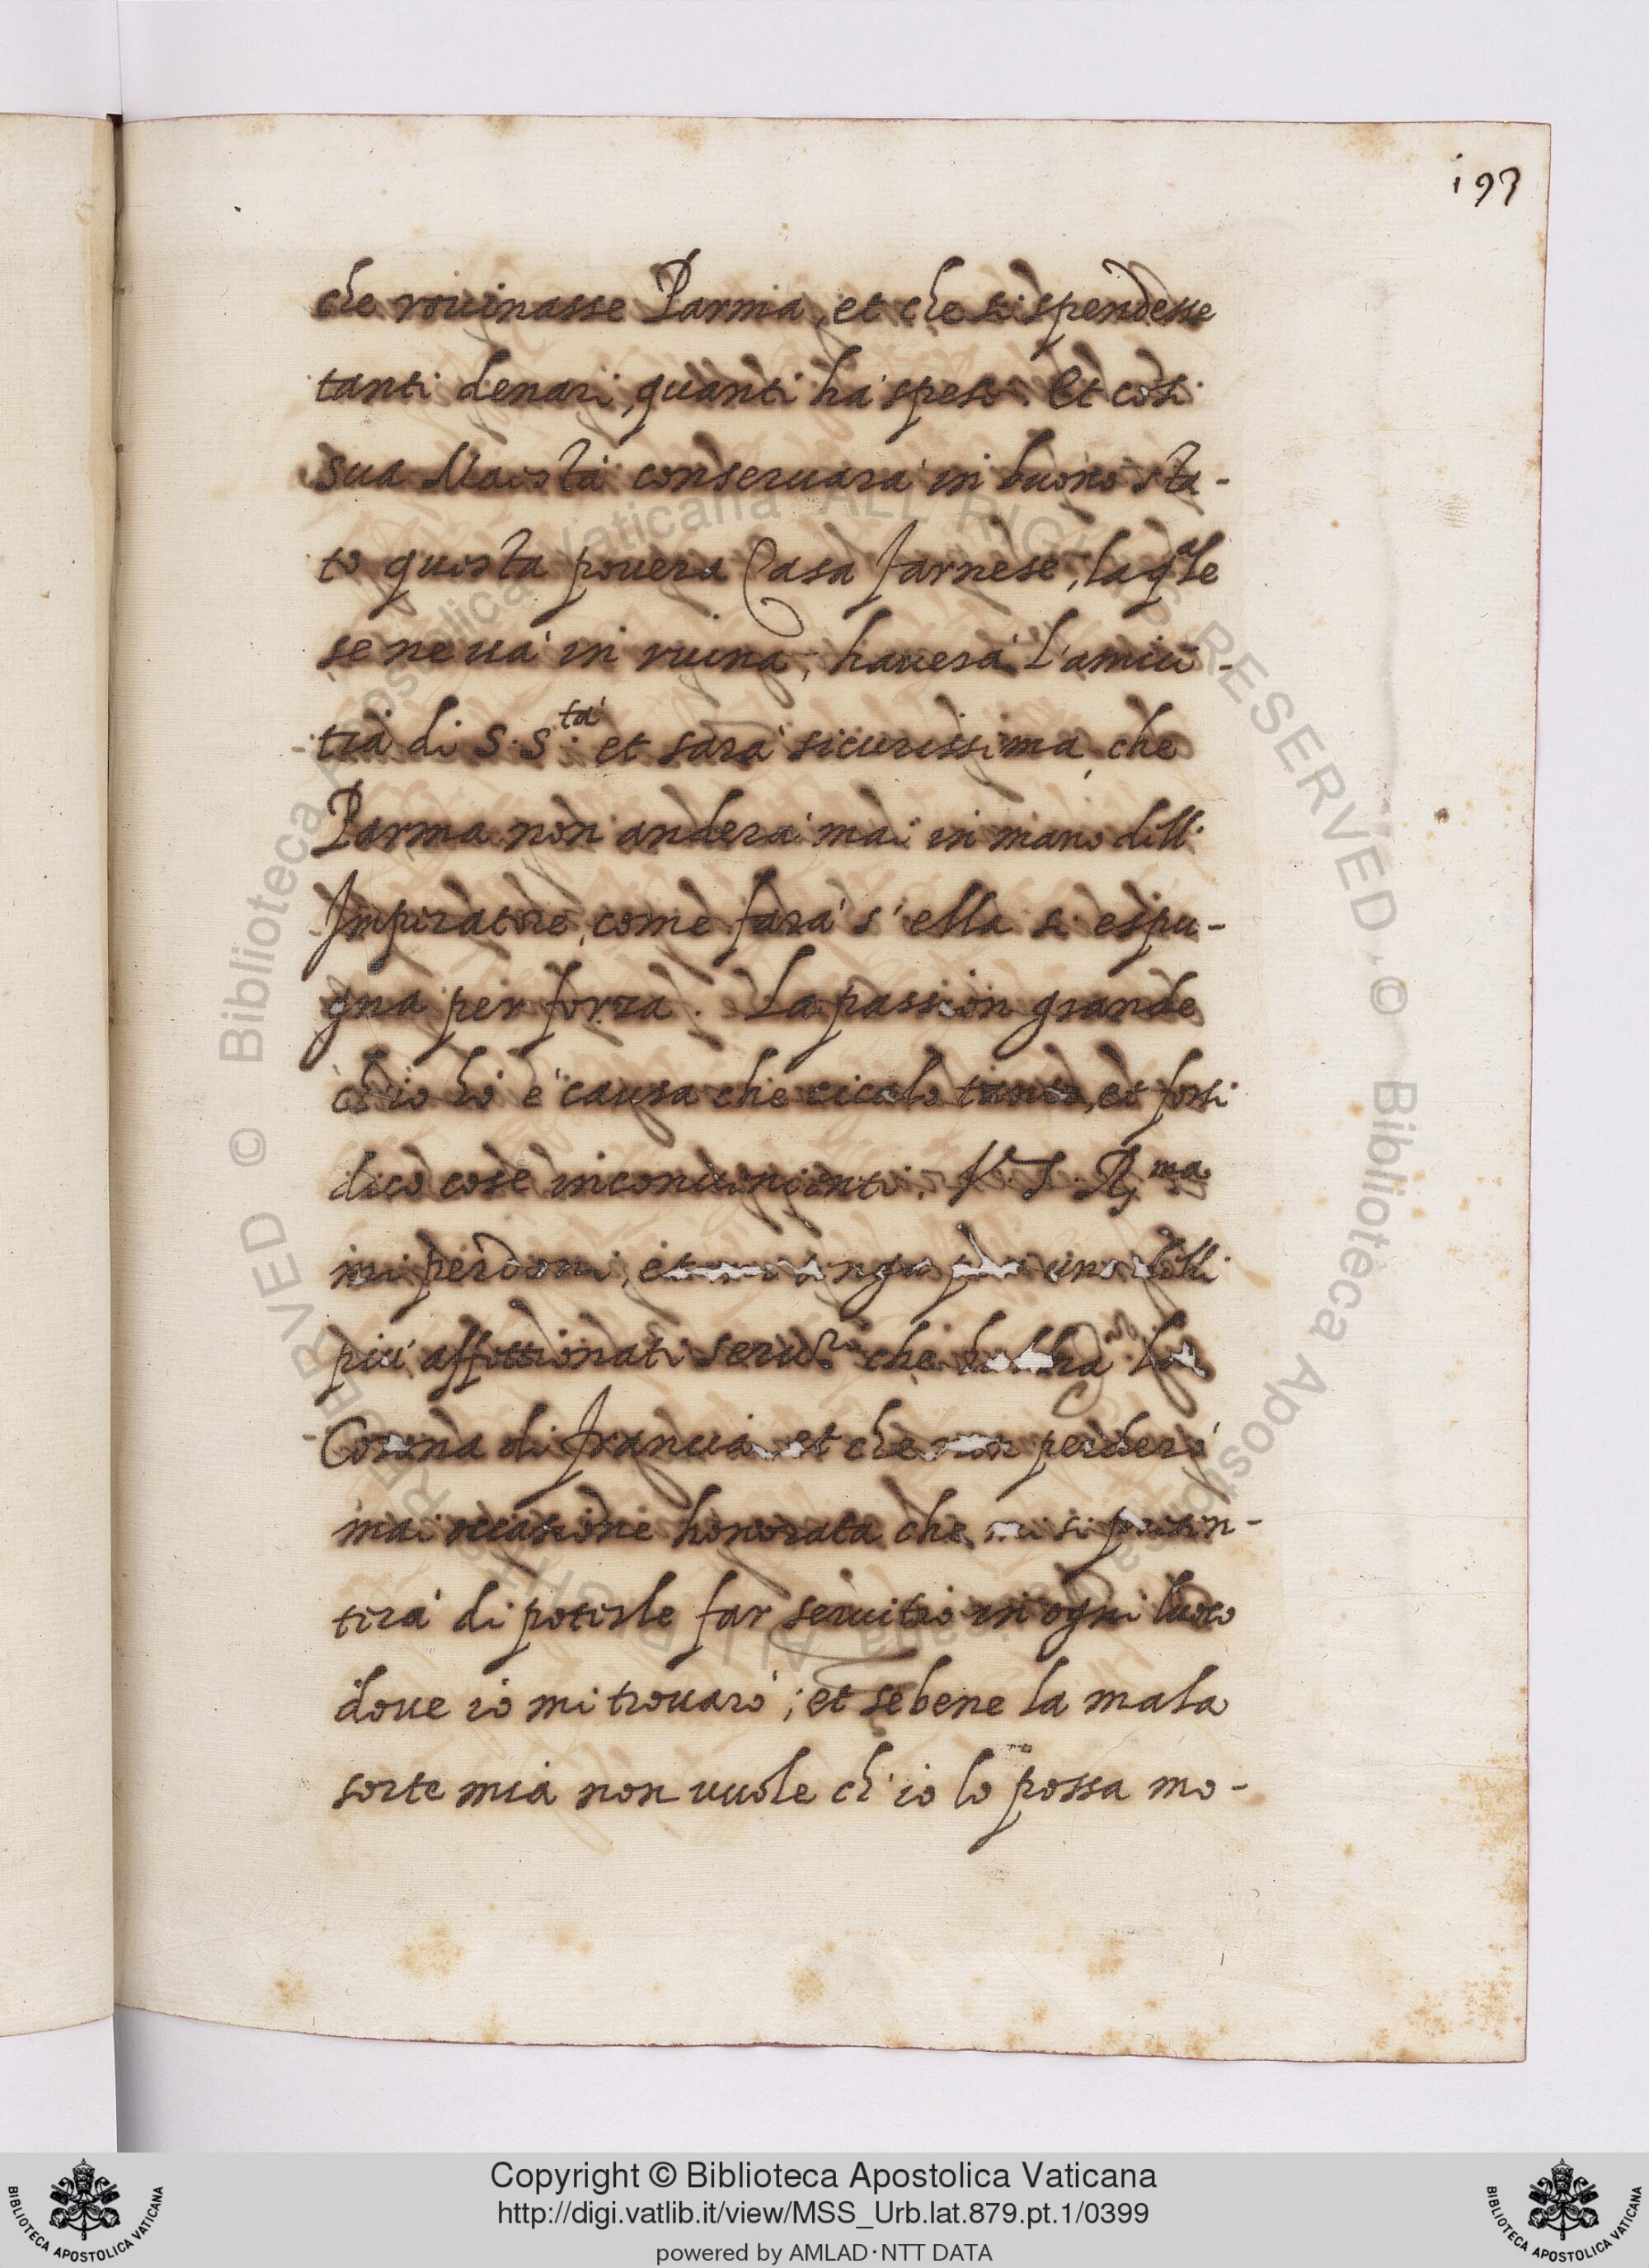 193
che rouinasse Parma, et che si spendesse
tanti denari, quanti ha' speso. Et cosi
sua Maestà conseruarà in buono sta-
to questa pouera Casa farnese, laq^ale
se ne uà in ruina, hauerà l'amici-
tia di S. S.^tà et sarà sicurissima che
Parma non anderà mai in mano dell
Imperatore, come farà s'ella si espu-
gna per forza. La passion grande
ch'io hò è causa che cicalo tanto, et forsi
dico cose inconuenienti. V. S. R.^ma
mi perdoni, et mi tenga per uno delli
più affettionati seru.^ri che habbia la
Corona di Francia et che non perderò
mai occasione honorata che mi si presen-
terà di poterle far seruitio in ogni luoco
doue io mi trouarò; et se bene la mala
sorte mia non uuole ch'io lo possa mo-
© Biblioteca Apostolica Vaticana ALL RIGHTS RESERVED
© Biblioteca Apostolica Vaticana ALL RIGHTS RESERVED
BIBLIOTECA APOSTOLICA VATICANA
Copyright © Biblioteca Apostolica Vaticana
http://digi.vatlib.it/view/MSS_Urb.lat.879.pt.1/0399
powered by AMLAD·NTT DATA
BIBLIOTECA APOSTOLICA VATICANA